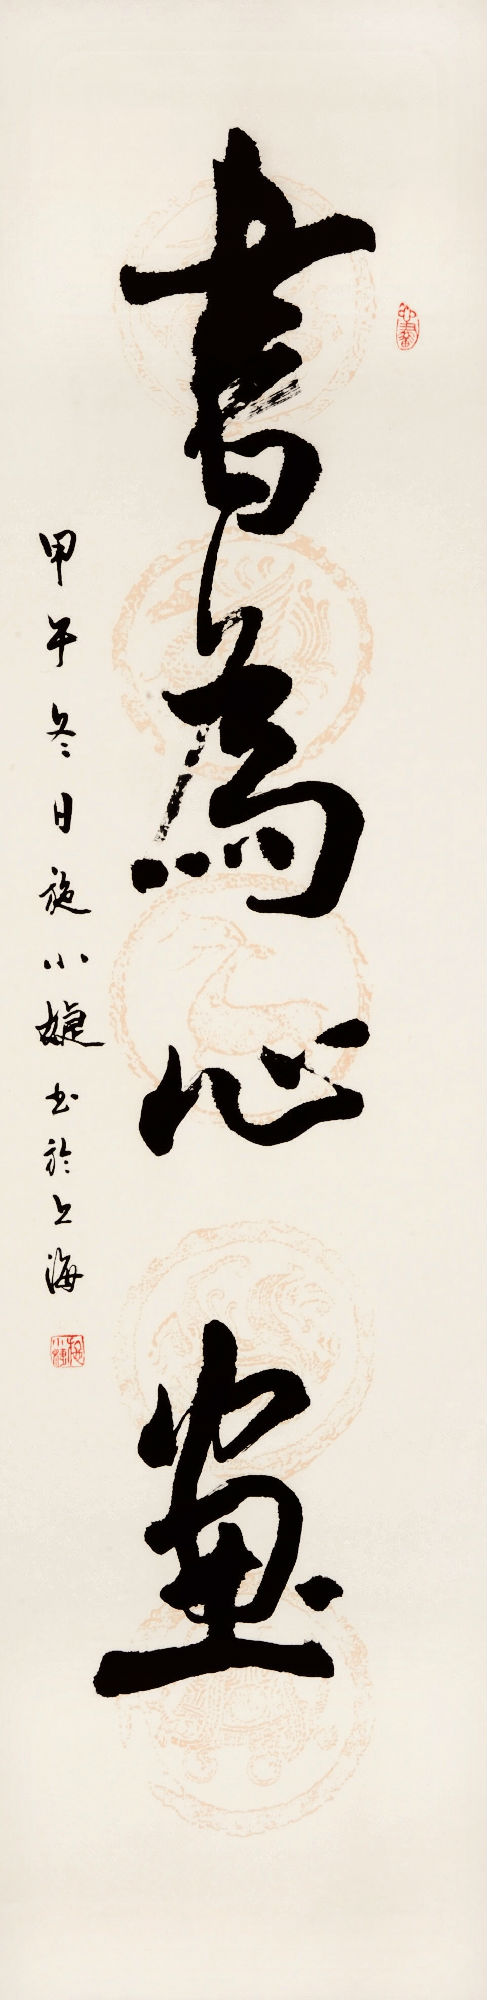 書為心畫
甲午冬日施小婕书於上海